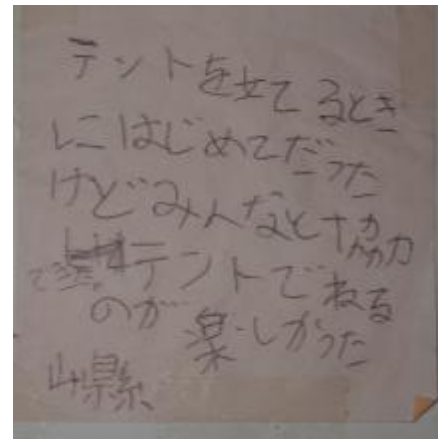 テントを立てるとき
にはじめてだった
けどみんなと協力
できた。テントでねる
のが楽しかった
山縣